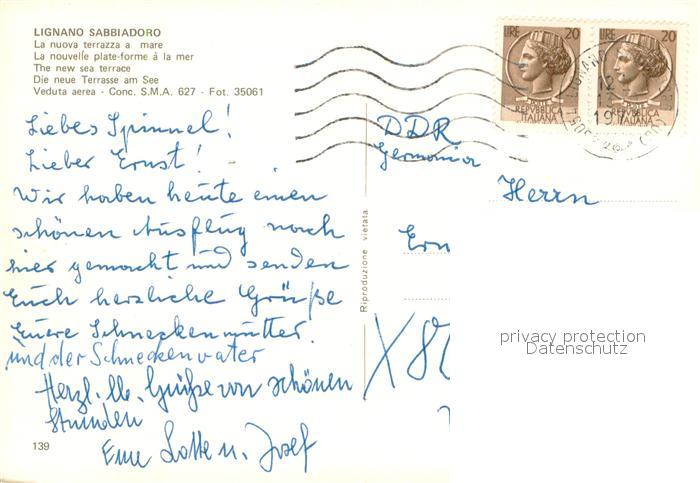 LIGNANO SABBIADORO
La nuova terrazza a mare
La nouvelle plate-forme à la mer
The new sea terrace
Die neue Terrasse am See
Veduta aerea - Conc. S.M.A. 627 - Fot. 35061
Liebes Spinnel!
Lieber Ernst!
Wir haben heute einen
schönen Ausflug nach
hier gemacht und senden
Euch herzliche Grüße
Euere Schneckenmutter
und der Schneckenvater
Herzl. lb. Grüße von schönen
Stunden
Eure Lotte u. Josef
139
Riproduzione vietata
LIRE 20
REPVBBLICA
ITALIANA
LIRE 20
REPVBBLICA
ITALIANA
DDR
Germania
Herrn
Ern
X 80
privacy protection
Datenschutz